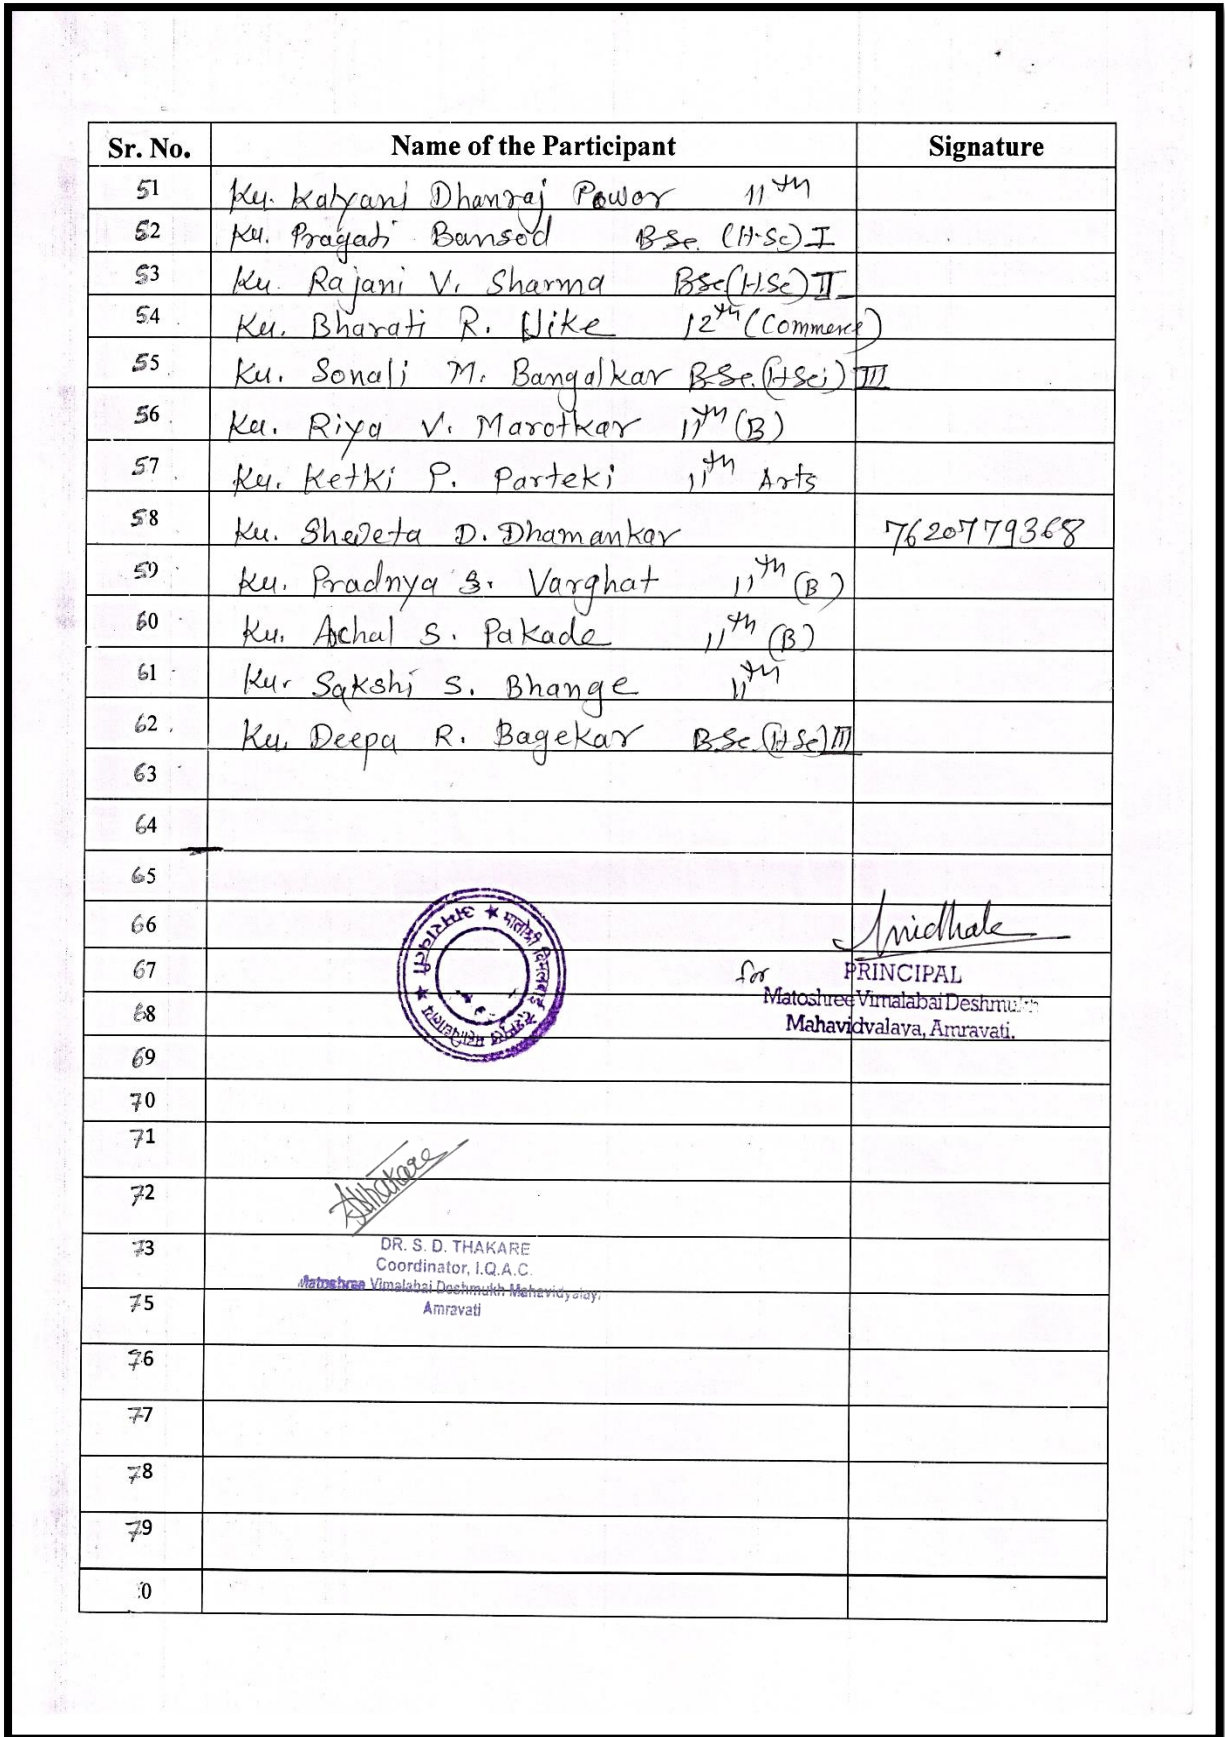 Sr. No. Name of the Participant Signature
51 Ku. Kalyani Dhanraj Power 11th
52 Ku. Pragati Bansod BSc. (H.Sc) I
53 Ku. Rajani V. Sharma BSc (H.Sc) II
54 Ku. Bharati R. Uike 12th (Commerce)
55 Ku. Sonali M. Bangalkar B.Sc. (H Sci) III
56 Ku. Riya V. Marotkar 11th (B)
57 Ku. Ketki P. Parteki 11th Arts
58 Ku. Sheveta D. Dhamankar 7620779368
59 Ku. Pradnya S. Varghat 11th (B)
60 Ku. Achal S. Pakade 11th (B)
61 Ku. Sakshi S. Bhange 11th
62 Ku. Deepa R. Bagekar B.Sc. (H Sc) III
63
64
65
66
67
68
69
70
71
72
73
75
76
77
78
79
0
अमरावती ★ मातोश्री विमलाबाई देशमुख महाविद्यालय ★
for PRINCIPAL
Matoshree Vimalabai Deshmukh
Mahavidyalaya, Amravati.
SDThakare
DR. S. D. THAKARE
Coordinator, I.Q.A.C.
Matoshree Vimalabai Deshmukh Mahavidyalay,
Amravati